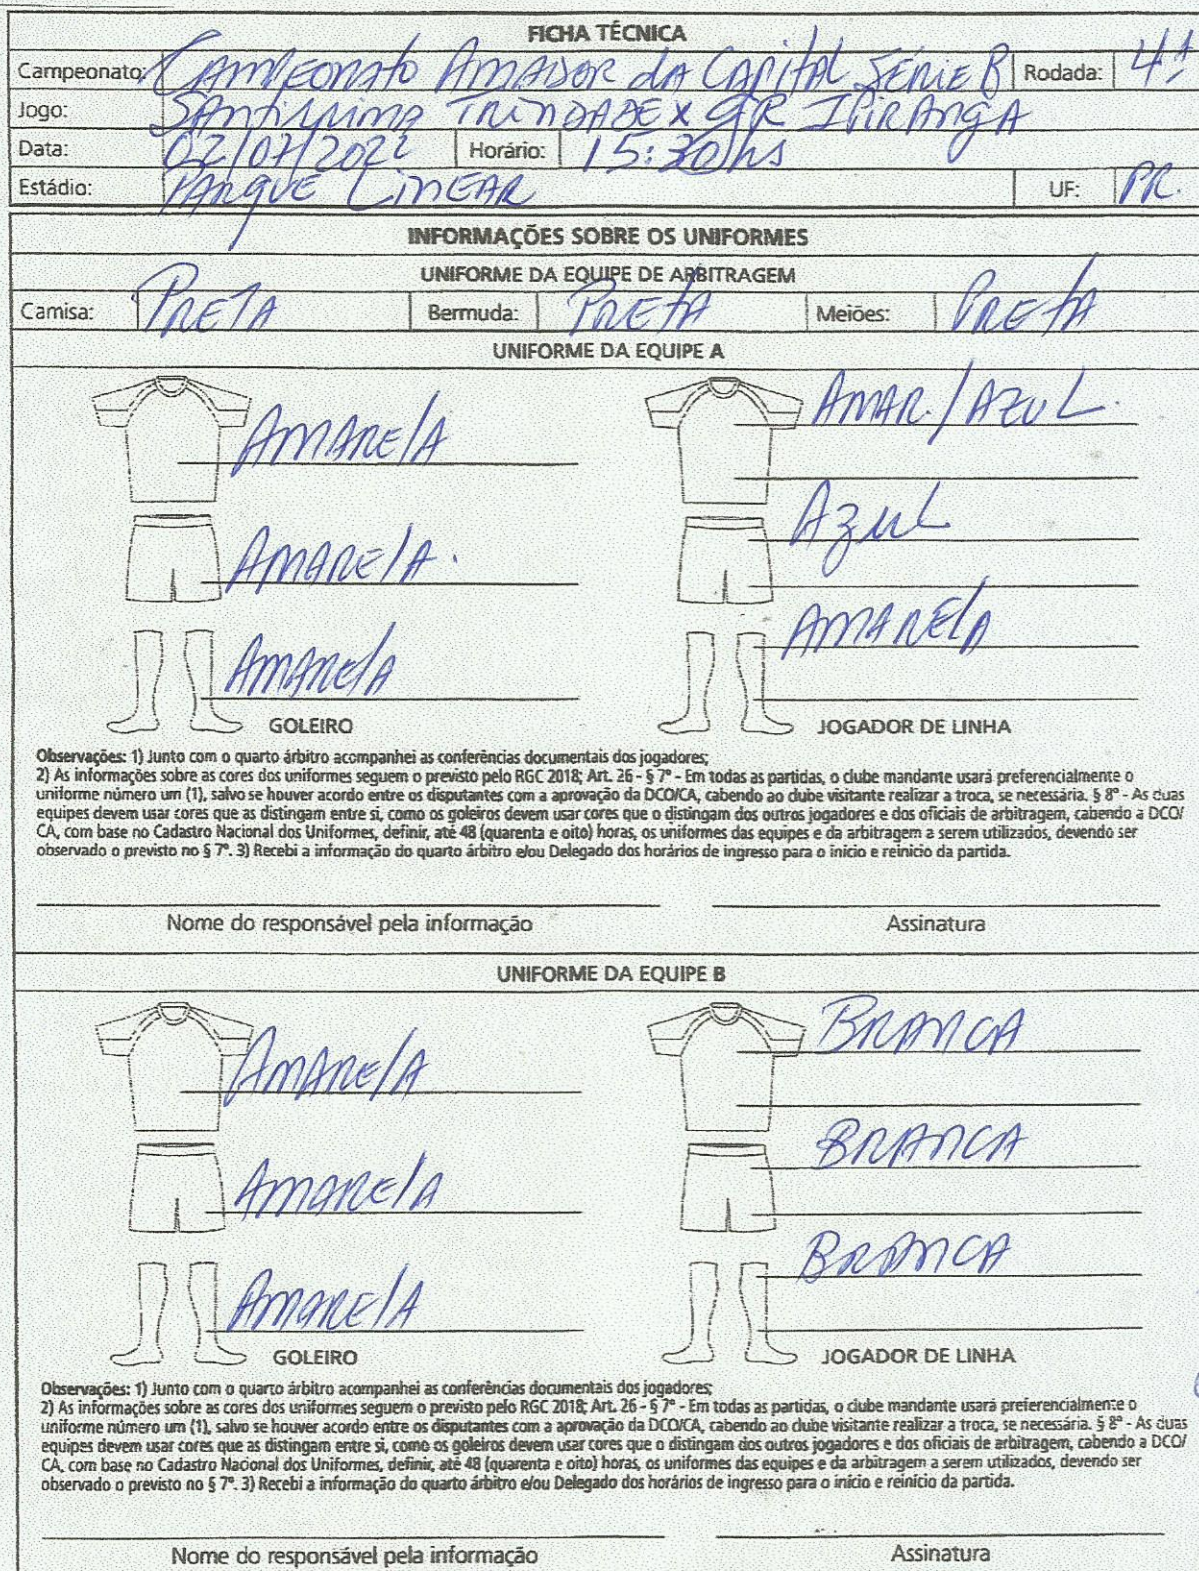 FICHA TÉCNICA
Campeonato: CAMPEONATO AMADOR DA CAPITAL SÉRIE B Rodada: 4ª
Jogo: SANTISSIMA TRINDADE X GR IPIRANGA
Data: 02/07/2022 Horário: 15:30hs
Estádio: PARQUE LINEAR UF: PR.
INFORMAÇÕES SOBRE OS UNIFORMES
UNIFORME DA EQUIPE DE ARBITRAGEM
Camisa: PRETA Bermuda: PRETA Meiões: PRETA
UNIFORME DA EQUIPE A
AMARELA AMAR./AZUL.
AMARELA. AZUL
AMARELA AMARELA
GOLEIRO JOGADOR DE LINHA
Observações: 1) Junto com o quarto árbitro acompanhei as conferências documentais dos jogadores;
2) As informações sobre as cores dos uniformes seguem o previsto pelo RGC 2018; Art. 26 - § 7º - Em todas as partidas, o clube mandante usará preferencialmente o
uniforme número um (1), salvo se houver acordo entre os disputantes com a aprovação da DCO/CA, cabendo ao clube visitante realizar a troca, se necessária. § 8º - As duas
equipes devem usar cores que as distingam entre si, como os goleiros devem usar cores que o distingam dos outros jogadores e dos oficiais de arbitragem, cabendo a DCO/
CA, com base no Cadastro Nacional dos Uniformes, definir, até 48 (quarenta e oito) horas, os uniformes das equipes e da arbitragem a serem utilizados, devendo ser
observado o previsto no § 7º. 3) Recebi a informação do quarto árbitro e/ou Delegado dos horários de ingresso para o início e reinício da partida.
Nome do responsável pela informação Assinatura
UNIFORME DA EQUIPE B
AMARELA BRANCA
AMARELA BRANCA
AMARELA BRANCA
GOLEIRO JOGADOR DE LINHA
Observações: 1) Junto com o quarto árbitro acompanhei as conferências documentais dos jogadores;
2) As informações sobre as cores dos uniformes seguem o previsto pelo RGC 2018; Art. 26 - § 7º - Em todas as partidas, o clube mandante usará preferencialmente o
uniforme número um (1), salvo se houver acordo entre os disputantes com a aprovação da DCO/CA, cabendo ao clube visitante realizar a troca, se necessária. § 8º - As duas
equipes devem usar cores que as distingam entre si, como os goleiros devem usar cores que o distingam dos outros jogadores e dos oficiais de arbitragem, cabendo a DCO/
CA, com base no Cadastro Nacional dos Uniformes, definir, até 48 (quarenta e oito) horas, os uniformes das equipes e da arbitragem a serem utilizados, devendo ser
observado o previsto no § 7º. 3) Recebi a informação do quarto árbitro e/ou Delegado dos horários de ingresso para o início e reinício da partida.
Nome do responsável pela informação Assinatura